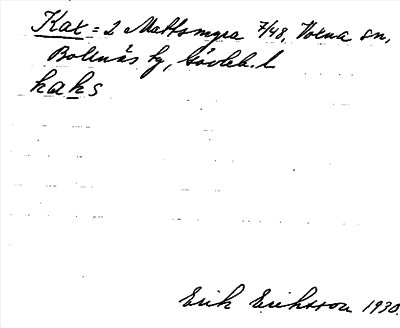 Kax = 2 Mattsmyra 7/48, Voxna sn,
Bollnäs kg, Gävleb. l
haks
Erik Eriksson 1930.